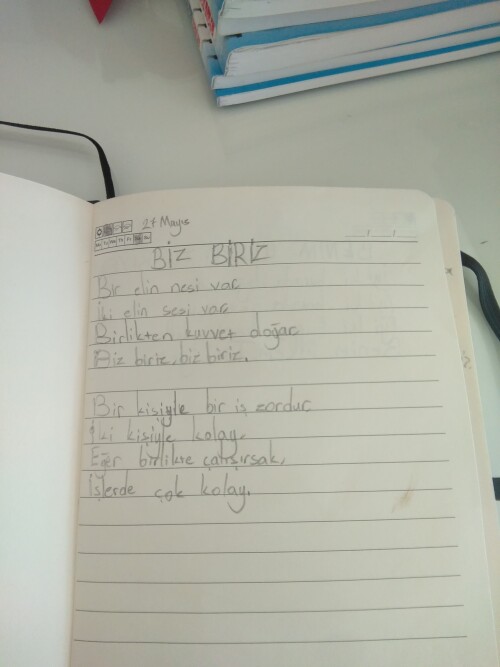 27 Mayıs
BİZ BİRİZ
Bir elin nesi var
İki elin sesi var
Birlikten kuvvet doğar
Biz biriz, biz biriz.
Bir kişiyle bir iş zordur
İki kişiyle kolay.
Eğer birlikte çalışırsak,
İşlerde çok kolay.